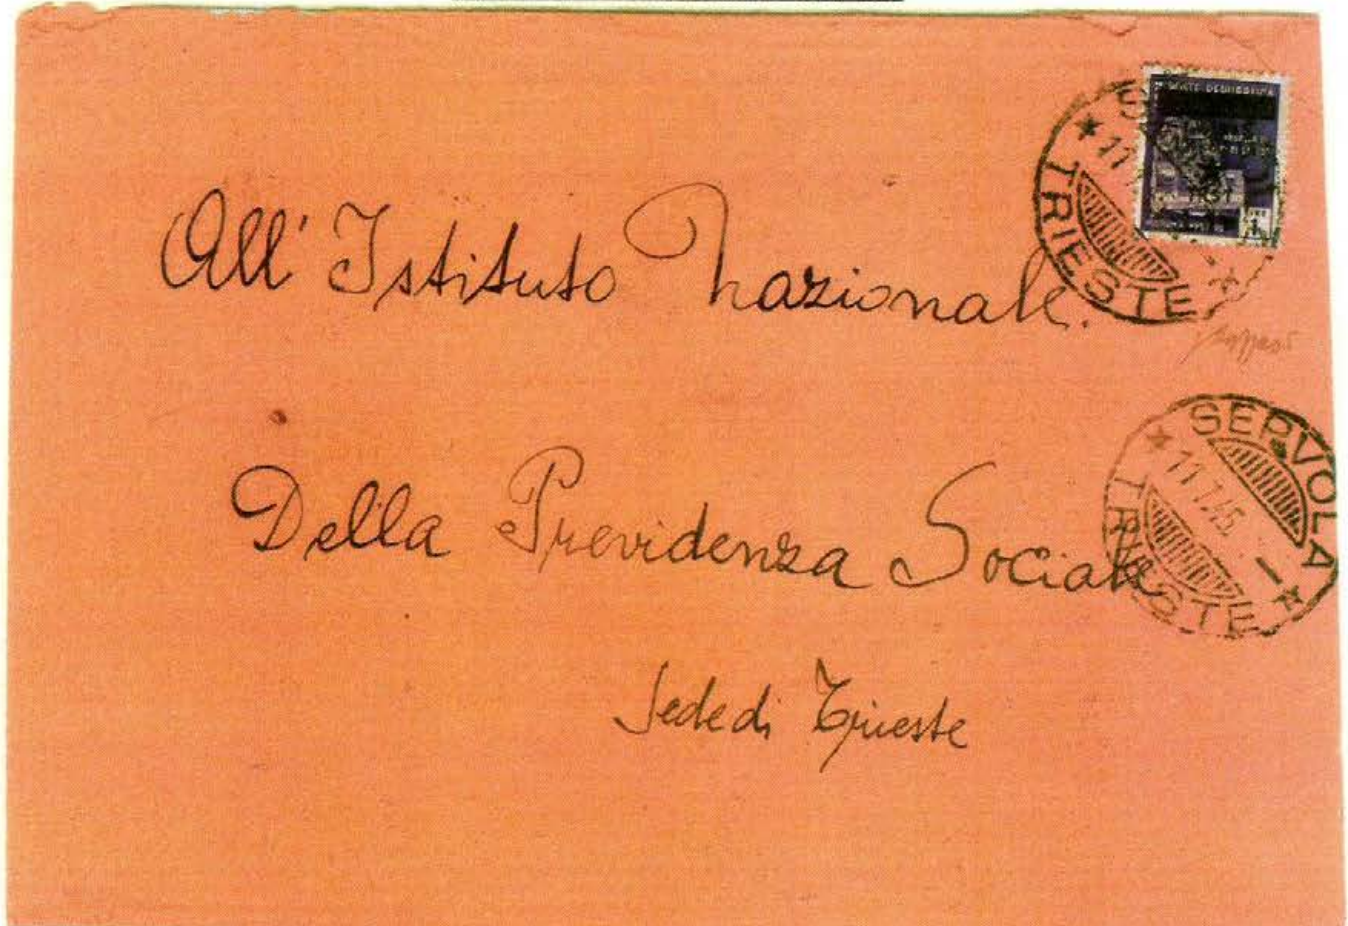 All' Istituto Nazionale.
Della Previdenza Sociale
Sede di Trieste
TRIESTE
SERVOLA
11.7.45
TRIESTE